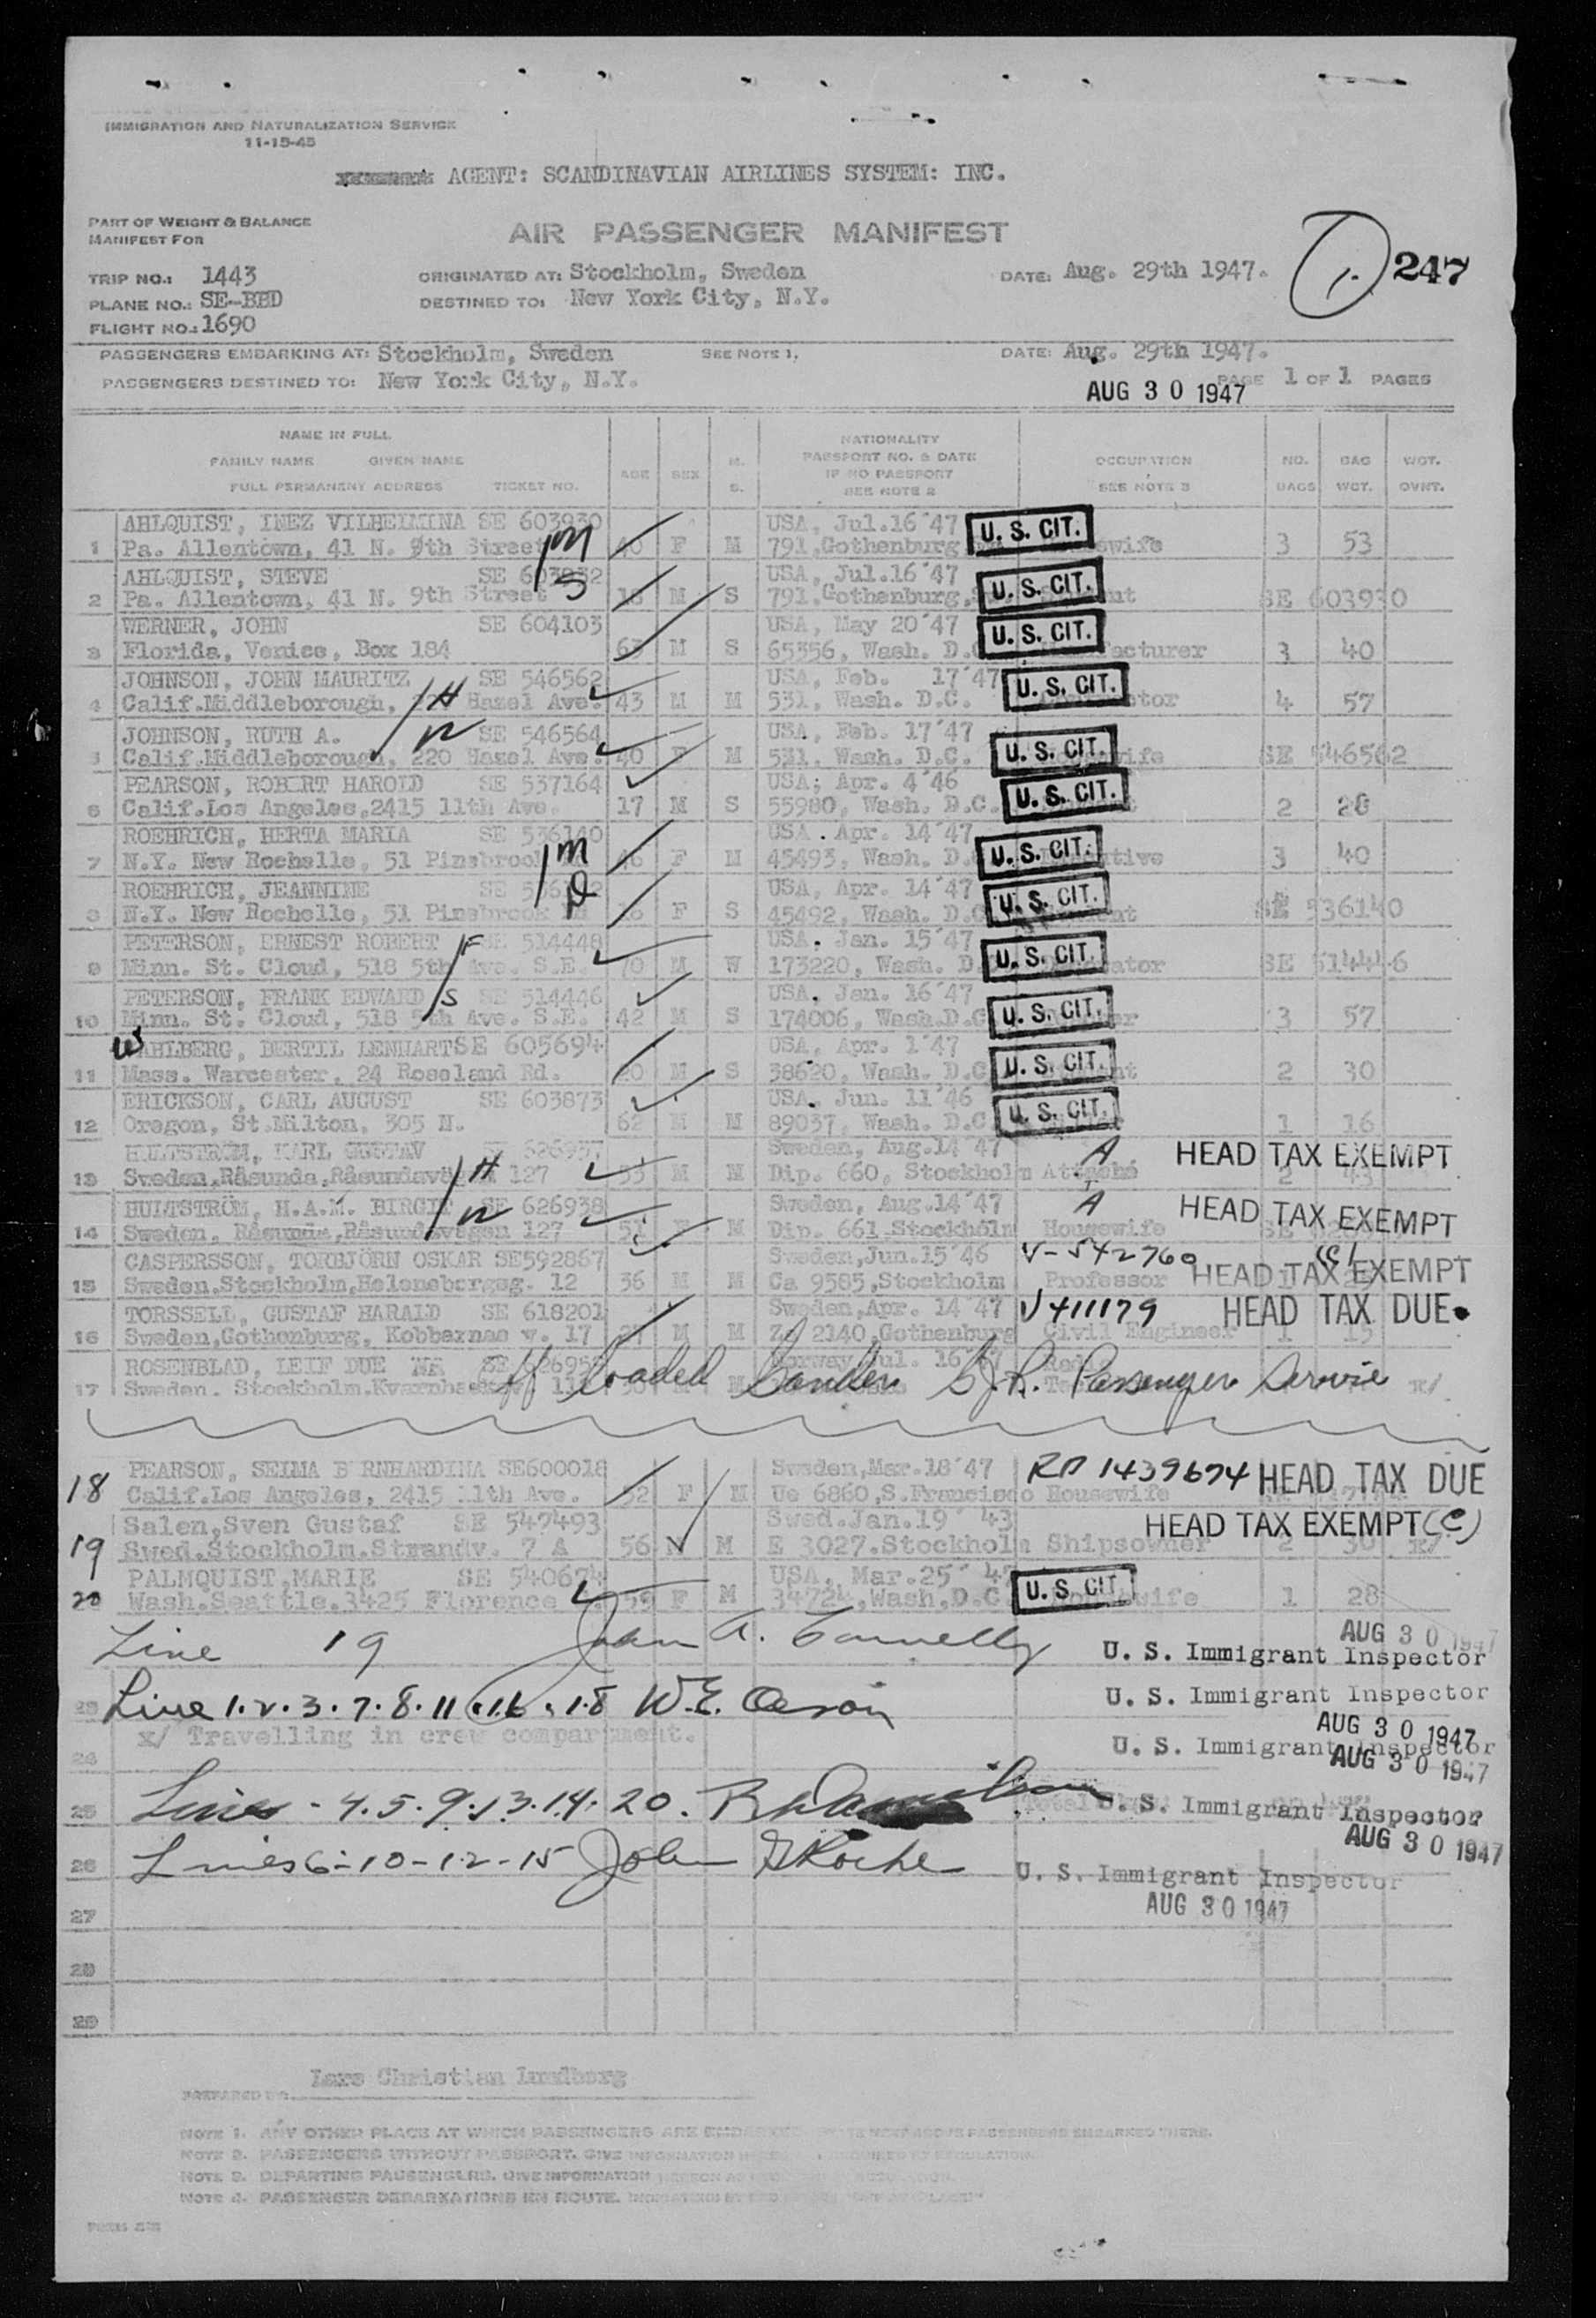 IMMIGRATION AND NATURALIZATION SERVICE
11-15-45
AGENT: SCANDINAVIAN AIRLINES SYSTEM: INC.
PART OF WEIGHT & BALANCE
MANIFEST FOR
AIR PASSENGER MANIFEST
1. 247
TRIP NO.: 1443 ORIGINATED AT: Stockholm, Sweden DATE: Aug. 29th 1947.
PLANE NO.: SE-BBD DESTINED TO: New York City, N.Y.
FLIGHT NO.: 1690
PASSENGERS EMBARKING AT: Stockholm, Sweden SEE NOTE 1, DATE: Aug. 29th 1947.
PASSENGERS DESTINED TO: New York City, N.Y. PAGE 1 OF 1 PAGES
AUG 30 1947
NAME IN FULL NATIONALITY
FAMILY NAME GIVEN NAME AGE SEX M. PASSPORT NO. & DATE OCCUPATION NO. BAG WGT.
FULL PERMANENT ADDRESS TICKET NO. S. IF NO PASSPORT SEE NOTE 3 BAGS WGT. OVNT.
SEE NOTE 2
AHLQUIST, INEZ VILHELMINA SE 603930 USA, Jul.16'47 U. S. CIT.
1 Pa. Allentown, 41 N. 9th Street m 40 F M 791, Gothenburg 3 53
AHLQUIST, STEVE SE USA, Jul.16'47 U. S. CIT.
2 Pa. Allentown, 41 N. 9th Street S M S 791, Gothenburg, SE 603930
WERNER, JOHN SE 604103 USA, May 20'47 U. S. CIT.
3 Florida, Venice, Box 184 63 M S 65356, Wash. D.C. 3 40
JOHNSON, JOHN MAURITZ SE 546562 USA, Feb. 17'47 U. S. CIT.
4 Calif. Middleborough, H Hazel Ave. 43 M M 531, Wash. D.C. 4 57
JOHNSON, RUTH A. W SE 546564 USA, Feb. 17'47 U. S. CIT.
5 Calif. Middleborough, 220 Hazel Ave. 40 F M 531, Wash. D.C. SE 546562
PEARSON, ROBERT HAROLD SE 537164 USA; Apr. 4'46 U. S. CIT.
6 Calif.Los Angeles,2415 11th Ave. 17 M S 55980, Wash. D.C. 2 28
ROEHRICH, HERTA MARIA SE 536140 USA. Apr. 14'47 U. S. CIT.
7 N.Y. New Rochelle, 51 Pinebrook m 46 F M 45493, Wash. D. 3 40
ROEHRICH, JEANNINE SE USA, Apr. 14'47 U. S. CIT.
8 N.Y. New Rochelle, 51 Pinebrook D F S 45492, Wash. D.C SE 536140
PETERSON, ERNEST ROBERT F SE 514448 USA. Jan. 15'47 U. S. CIT.
9 Minn. St. Cloud, 518 5th Ave. S.E. 70 M W 173220, Wash. D. SE 514446
PETERSON, FRANK EDWARD S SE 514446 USA. Jan. 16'47 U. S. CIT.
10 Minn. St. Cloud, 518 5th Ave. S.E. 42 M S 174006, Wash.D.C 3 57
WAHLBERG, BERTIL LENHART SE 605694 USA, Apr. 1'47 U. S. CIT.
11 Mass. Warcester, 24 Roseland Rd. 20 M S 38620, Wash. D.C 2 30
ERICKSON, CARL AUGUST SE 603873 USA, Jun. 11'46 U. S. CIT.
12 Oregon, St.Milton, 305 N. 62 M M 89037, Wash. D.C. 1 16
HULTSTRÖM, KARL GUSTAV 626937 Sweden, Aug.14'47 A HEAD TAX EXEMPT
13 Sweden,Råsunda,Råsundavägen 127 H 53 M M Dip. 660, Stockholm Attaché 2 43
HULTSTRÖM, H.A.M. BIRGIT SE 626938 Sweden, Aug.14'47 A HEAD TAX EXEMPT
14 Sweden, Råsunda,Råsundavägen 127 W 51 F M Dip. 661 Stockholm Housewife
CASPERSSON, TORBJÖRN OSKAR SE592867 Sweden,Jun.15'46 V-542760 (C)
15 Sweden.Stockholm,Heleneborgsg. 12 36 M M Ca 9585,Stockholm Professor HEAD TAX EXEMPT
TORSSELL, GUSTAF HARALD SE 618201 Sweden,Apr. 14'47 V411179 HEAD TAX DUE
16 Sweden,Gothenburg, Kobbarnas v. 17 27 M M Za 2140,Gothenburg Civil Engineer 1 15
ROSENBLAD, LEIF DUE Norway Jul. 16'47
17 Sweden. Stockholm. off loaded Passenger Service x/
PEARSON, SELMA BERNHARDINA SE600018 Sweden,Mar.18'47 RP 1439674 HEAD TAX DUE
18 Calif.Los Angeles, 2415 11th Ave. 52 F M Ue 6860,S.Francisco Housewife
Salen,Sven Gustaf SE 547493 Swed.Jan.19' 43 HEAD TAX EXEMPT (C)
19 Swed.Stockholm.Strandv. 7 A 56 M M E 3027.Stockholm Shipsowner 2 30 x/
PALMQUIST,MARIE SE 540674 USA, Mar.25' 47 U. S. CIT.
20 Wash.Seattle.3425 Florence 55 F M 34724,Wash,D.C. 1 28
Line 19 John A. Connelly AUG 30 1947
U. S. Immigrant Inspector
23 Line 1.2.3.7.8.11.16.18 W.E. U. S. Immigrant Inspector
AUG 30 1947
x/ Travelling in crew compartment.
24 U. S. Immigrant Inspector
AUG 30 1947
25 Lines - 4.5.9.13.14.20. U. S. Immigrant Inspector
AUG 30 1947
26 Lines 6-10-12-15 John Roche U. S. Immigrant Inspector
27 AUG 30 1947
28
29
PREPARED BY Lars Christian Lundborg
NOTE 1. ANY OTHER PLACE AT WHICH PASSENGERS ARE PASSENGERS EMBARKED THERE.
NOTE 2. PASSENGERS WITHOUT PASSPORT. GIVE INFORMATION REGULATION
NOTE 3. DEPARTING PASSENGERS. GIVE INFORMATION
NOTE 4. PASSENGER DEBARKATIONS EN ROUTE.